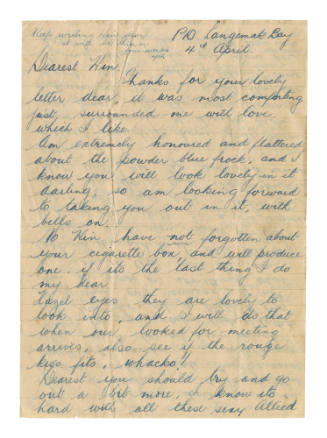 Keep writing
P/O Langemak Bay
4th April
Dearest Kim,
Thanks for your lovely
letter dear, it was most comforting
just, surrounded me with love
which I like
Am extremely honoured and flattered
about the powder blue frock, and I
know you will look lovely in it
darling, so am looking forward
to taking you out in it, with
bells on.
No Kim, have not forgotten about
your cigarette box, and will produce
one if its the last thing I do
my dear
Hazel eyes they are lovely to
look into, and I will do that
when our looked for meeting
arrives, also see if the rouge
kiss fits, whacko!!
Dearest you should try and go
out a bit more, I know its
hard with all these sexy Allied